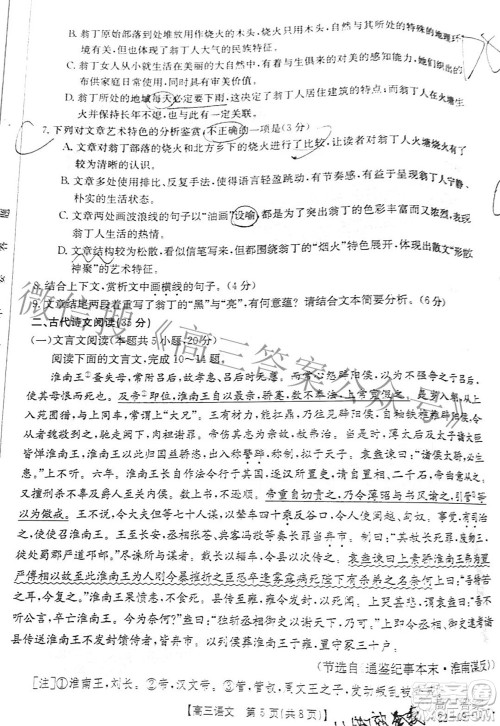 B. 翁丁原始部落到处堆放用作烧火的木头,烧火只用木头,自然与其所处的特殊的地理环
境有关,但也体现了翁丁人大气的民族特征。
C. 翁丁女人从小就生活在美丽的大自然中,有着与生俱来的对美的感悟能力,她们织出的
布供家庭日常所需,同时具有审美价值。
D. 翁丁所处的地域每天必定要下雨,这决定了翁丁人居住建筑的特点,而翁丁人在火塘生
火并保持长年不熄,也与此有很大的关系。
7. 下列对文章艺术特色的分析鉴赏,不正确的一项是(3分)
A. 文章对翁丁部落的烧火和北方乡下的烧火进行了比较,让读者对翁丁人火塘烧火有了
较为清晰的认识。
B. 文章多处使用排比、反复手法,使得语言轻盈跳动,有节奏感,有益于表现翁丁人宁静、
朴实的生活状态。
C. 文章两处画波浪线的句子以“油画”设喻,都是为了突出表现翁丁的色彩丰富而又厚重,
翁丁人生活的热情。
D. 文章结构较为松散,看似信笔写来,但都围绕翁丁的“烟火”特色展开,体现出散文“形散
神聚”的艺术特征。
8. 结合上下文,赏析文中画横线的句子。(4分)
9. 文章结尾两段着重写了翁丁的“黑”与“亮”,有何意蕴?请结合文本简要分析。(6分)
二、古代诗文阅读(35分)
(一)文言文阅读(本题共5小题,20分)
阅读下面的文言文,完成10~14题。
淮南王①蚤失母,常附吕后,故孝惠、吕后时得无患,而常心怨辟阳侯,以为不强争之于吕后,
使其母恨而死也。及帝②即位,淮南王自以最亲,骄蹇,数不奉法,上常宽假之。是岁入朝,从上
入苑囿猎,与上同车,常谓上“大兄”。王有材力,能扛鼎,乃往见辟阳侯,自袖铁椎椎辟阳侯,令
从者魏敬刭之,驰走阙下,肉袒谢罪。帝伤其志为亲故,赦弗治。当是时,薄太后及太子诸大臣
皆惮淮南王,淮南王以此归国益骄恣,出入称警跸,称制,拟于天子。袁盎谏曰:“诸侯太骄,必生
患。”上不听。六年。淮南厉王长自作法令行于其国,逐汉所置吏,请自置相、二千石,帝曲意从之,
又擅刑杀不辜及爵人至关内侯,数上书不逊顺。帝重自切责之,乃令薄昭与书风谕之,引管③等
以为儆戒。王不说,令大夫但、士伍开章等七十人谋,以辇车四十乘反谷口,令人使闽越、匈奴。事觉,有司治
之,使使召淮南王。王至长安,丞相张苍、典客冯敬等奏长罪当弃市。制曰:“其赦长死罪,废勿王,
徙处蜀郡严道邛邮。”尽诛所与谋者。载长以辎车,令县以次传之。袁盎谏曰上素骄淮南王弗为置
严傅相以故至此淮南王为人刚今暴摧折之臣恐卒逢雾露病死陛下有杀弟之名奈何上曰:“吾特苦
之耳,今复之。”淮南王果愤恚不食,死。县传至雍,雍令发封,以死闻。上哭甚悲,谓袁盎曰:“吾
不听公言,卒亡淮南王。今为奈何?”盎曰:“独斩丞相御史以谢天下乃可。”上即令丞相、御史逮考诸
县传送淮南王不发封馈侍者,皆弃市。以列侯葬淮南王于雍,置守冢三十户。
(节选自《通鉴纪事本末·淮南谋反》)
[注]①淮南王,刘长。②帝,汉文帝。③管,管叔,周文王之子,发动叛乱被
【高三语文 第5页(共8页)】
微信搜《高三答案公众号》